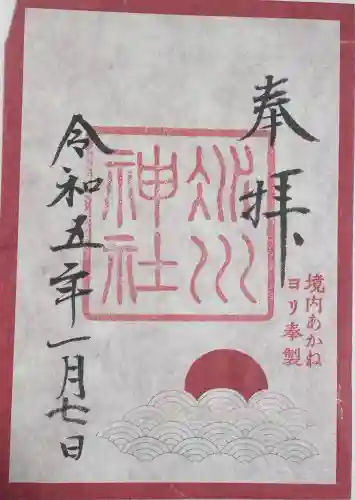 奉拝
氷川
神社
境内あかね
ヨリ奉製
令和五年一月七日